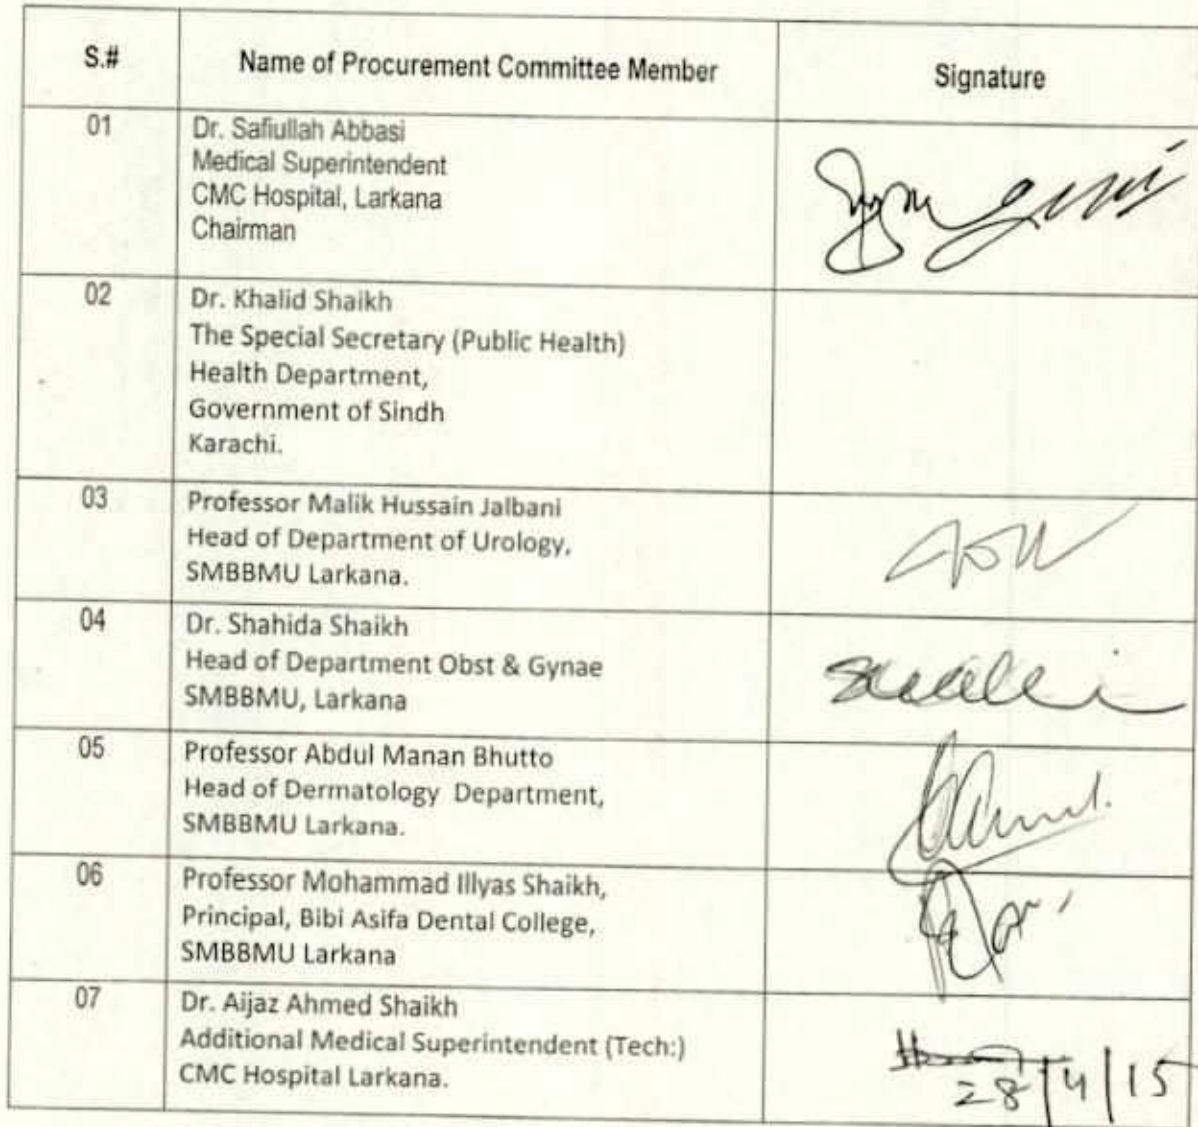 S.#
Name of Procurement Committee Member
Signature
01
Dr. Safiullah Abbasi
Medical Superintendent
CMC Hospital, Larkana
Chairman
02
Dr. Khalid Shaikh
The Special Secretary (Public Health)
Health Department,
Government of Sindh
Karachi.
03
Professor Malik Hussain Jalbani
Head of Department of Urology,
SMBBMU Larkana.
04
Dr. Shahida Shaikh
Head of Department Obst & Gynae
SMBBMU, Larkana
05
Professor Abdul Manan Bhutto
Head of Dermatology Department,
SMBBMU Larkana.
06
Professor Mohammad Illyas Shaikh,
Principal, Bibi Asifa Dental College,
SMBBMU Larkana
07
Dr. Aijaz Ahmed Shaikh
Additional Medical Superintendent (Tech:)
CMC Hospital Larkana.
28/4/15